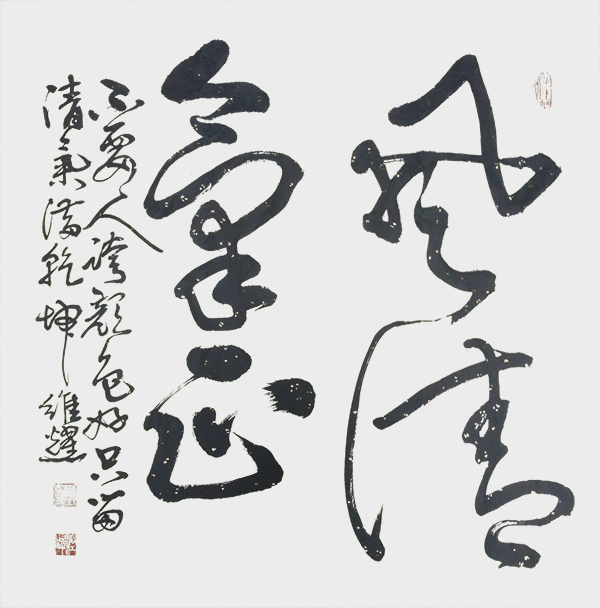 风清
氣正
不要人誇颜色好只留
清氣满乾坤 維耀